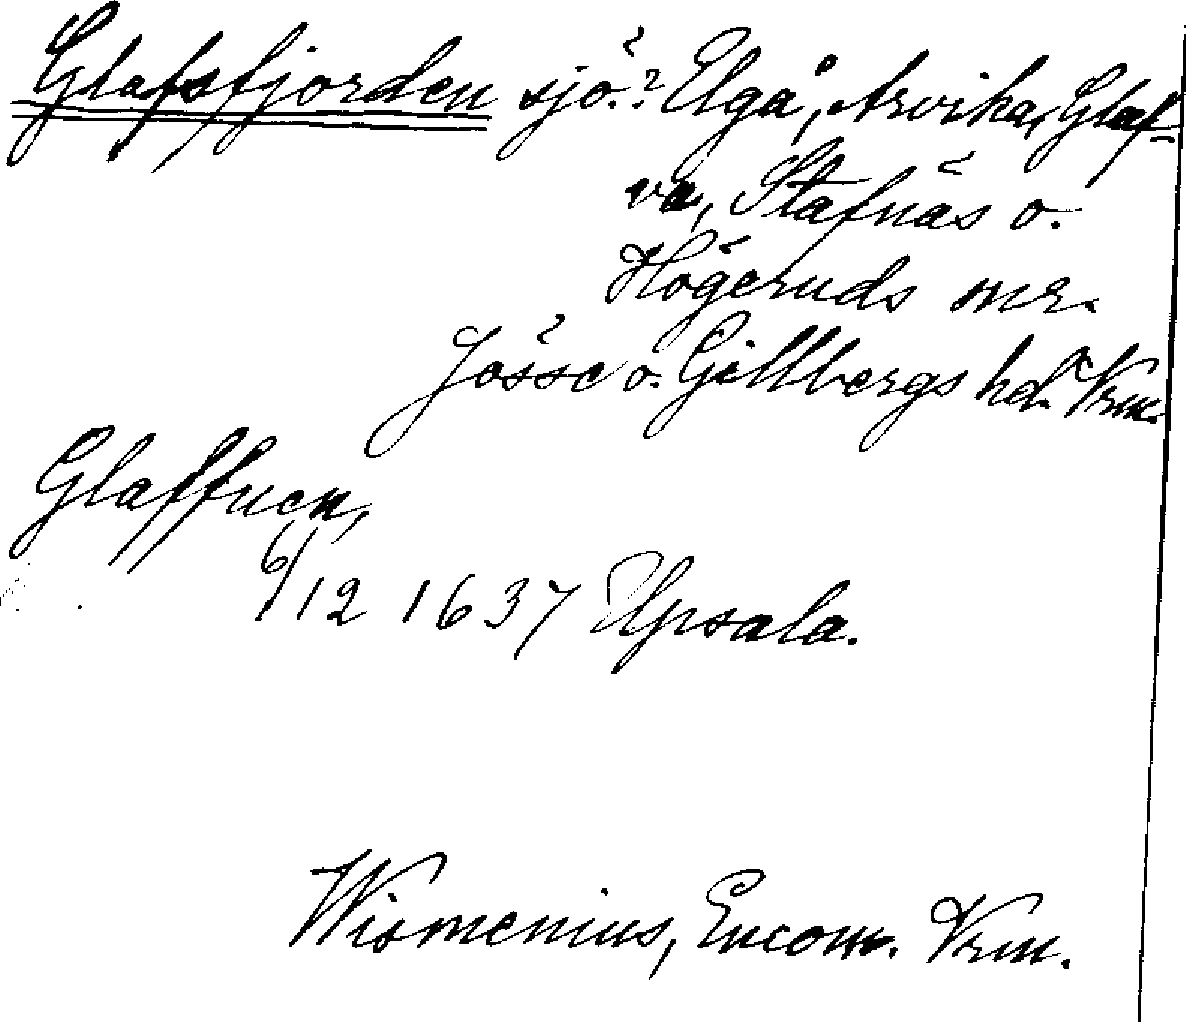 Glafsfjorden sjö.? Elgå, Arvika, Glaf-
va, Stafnäs o.
Högeruds snr.
Jösse o. Gillbergs hd. Vrm.
Glaffuen,
6/12 1637 Upsala.
Wismenius, Encom. Vrm.